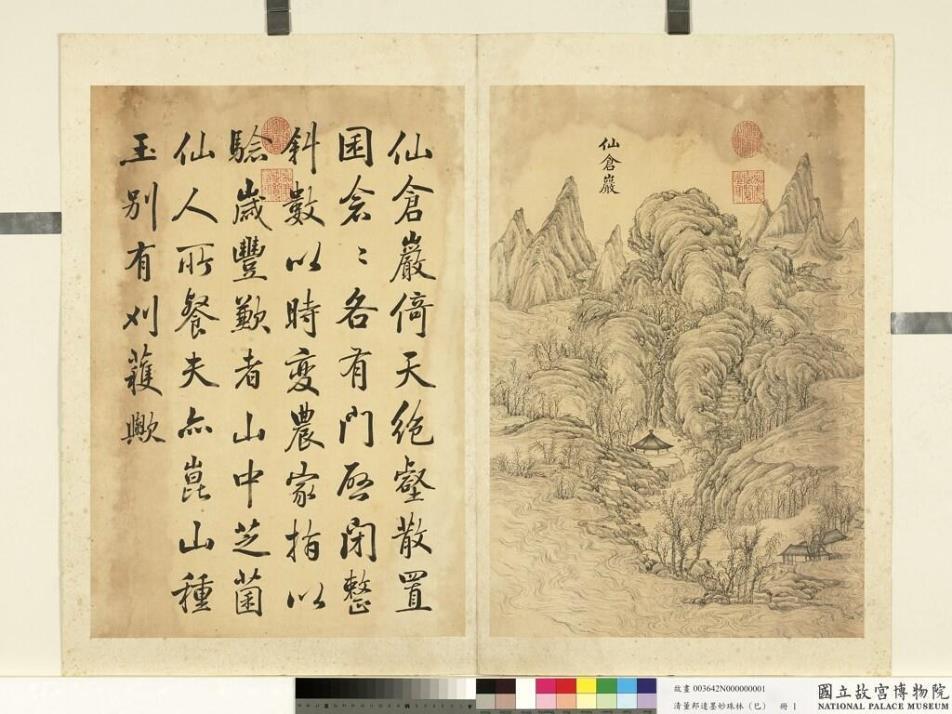 仙倉巖
仙倉巖倚天絶壑散置
囷倉〻各有門啓閉整
斜數以時變農家指以
驗歲豐歉者山中芝菌
仙人所餐夫亦崑山種
玉別有刈穫歟
故畫 003642N000000001
清董邦達墨妙珠林（巳） 冊 1
國立故宮博物院
NATIONAL PALACE MUSEUM